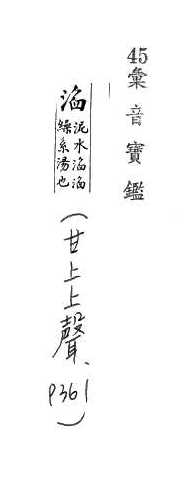 45彙音寶鑑
淊 泥水淊淊
繰糸湯也
(甘上上聲、P361)